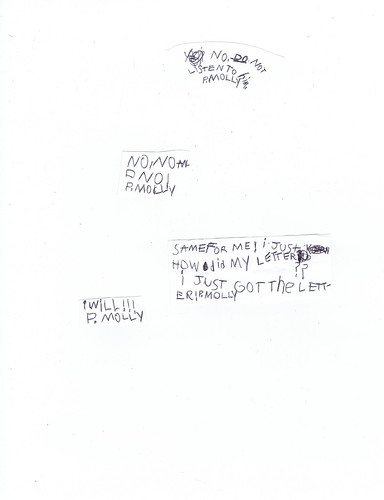 NO. DO NOT
LISTEN TO him
P.MOLLY
NO, NO
NO!
P.MOLLY
SAME FOR ME! i JUST
HOW did MY LETTER
??
I JUST GOT The LETT-
ER! P.MOLLY
i WILL!!!
P. MOLLY